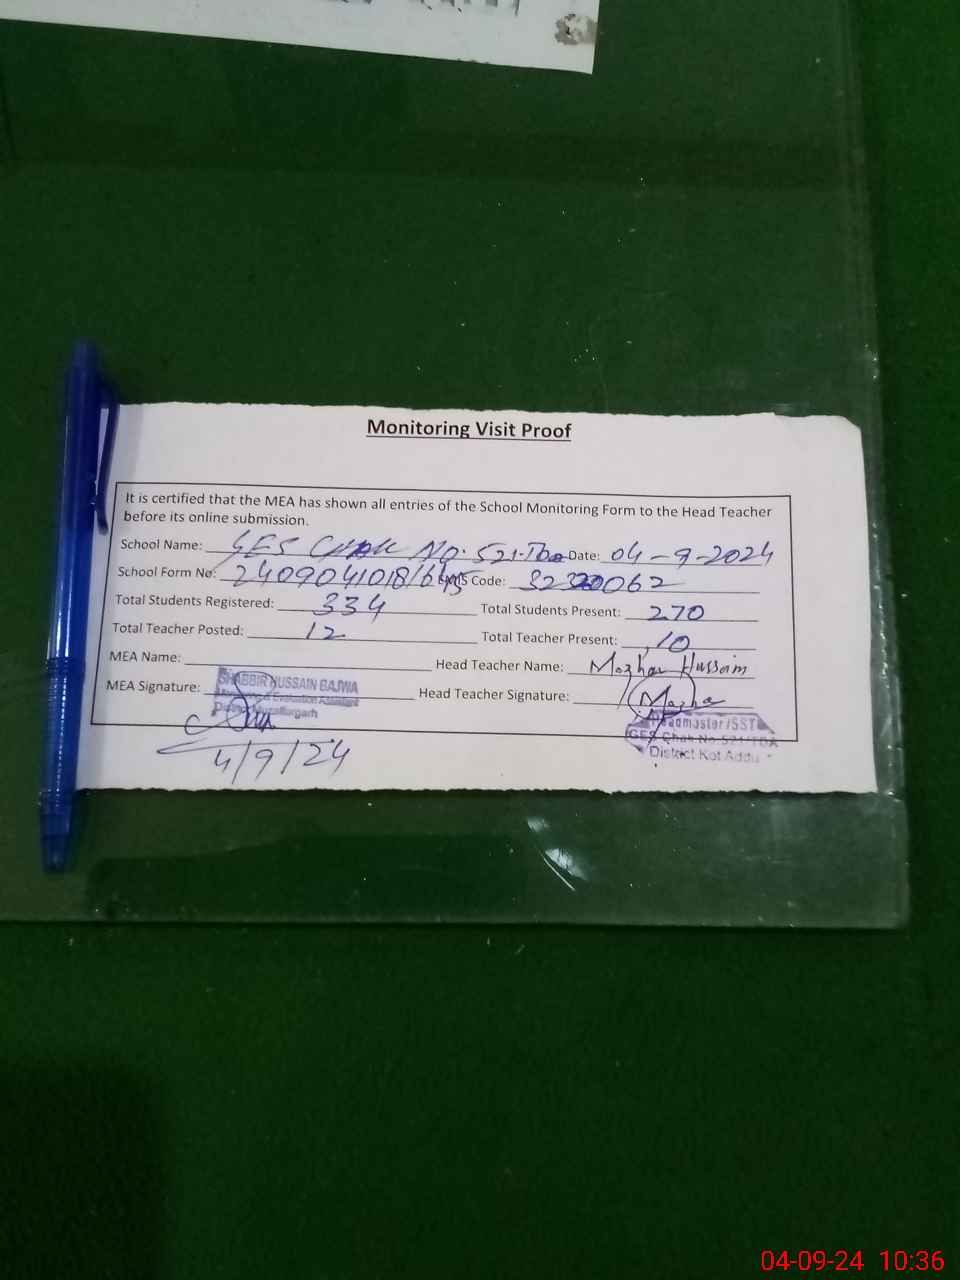 Monitoring Visit Proof
It is certified that the MEA has shown all entries of the School Monitoring Form to the Head Teacher
before its online submission.
School Name: GES Chak No. 521-TDA Date: 04-9-2024
School Form No: EMIS Code:
Total Students Registered: 334 Total Students Present: 270
Total Teacher Posted: 12 Total Teacher Present: 10
MEA Name: Head Teacher Name: Mazhar Hussain
MEA Signature: Head Teacher Signature: Mazhar
SHABBIR HUSSAIN BAJWA
Monitoring & Evaluation Assistant
District Muzaffargarh
4/9/24
Headmaster/SST
GES Chak No. 521/TDA
District Kot Addu
04-09-24 10:36